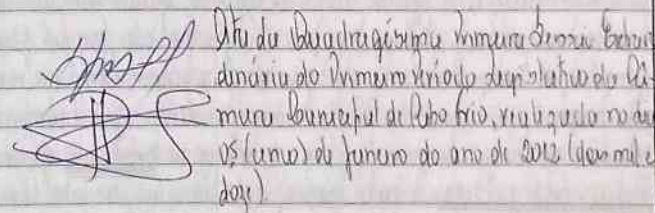 Ata da Quadragésima Primeira Sessão Extraor
dinária do Primeiro Período Legislativo da Câ-
mara Municipal de Cabo Frio, realizada no dia
05 (cinco) de janeiro do ano de 2012 (dois mil e
doze).